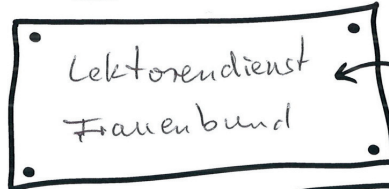 Lektorendienst
Frauenbund